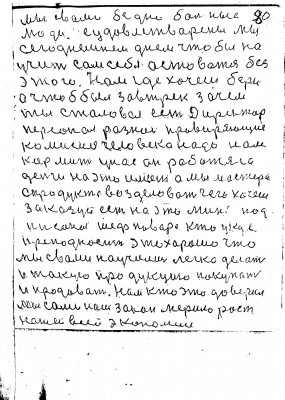 мы свами бедно бот ные 80
люди. с удовлетварены мы
сегодняшнем днем что бы на
учит сам себя остоватя без
этого. Нам где хочем бери
а что б был завтрек зачем
ты столовая есть Директар
персонал разной правиряющие
комисия человека надо и ам
кормит унас он работяга
дети на это имеет а мы мастера
спродуктв возделоват чего хочеш
заказуй сет на это миню под
писаное шедоповаре кто ужде
преподносит это харашо что
мы свами научили легко делат
и такую продукцию покупат
и продоват. Нам кто это доверил
мы сами наш закон мерило рост
нашей всей экономии